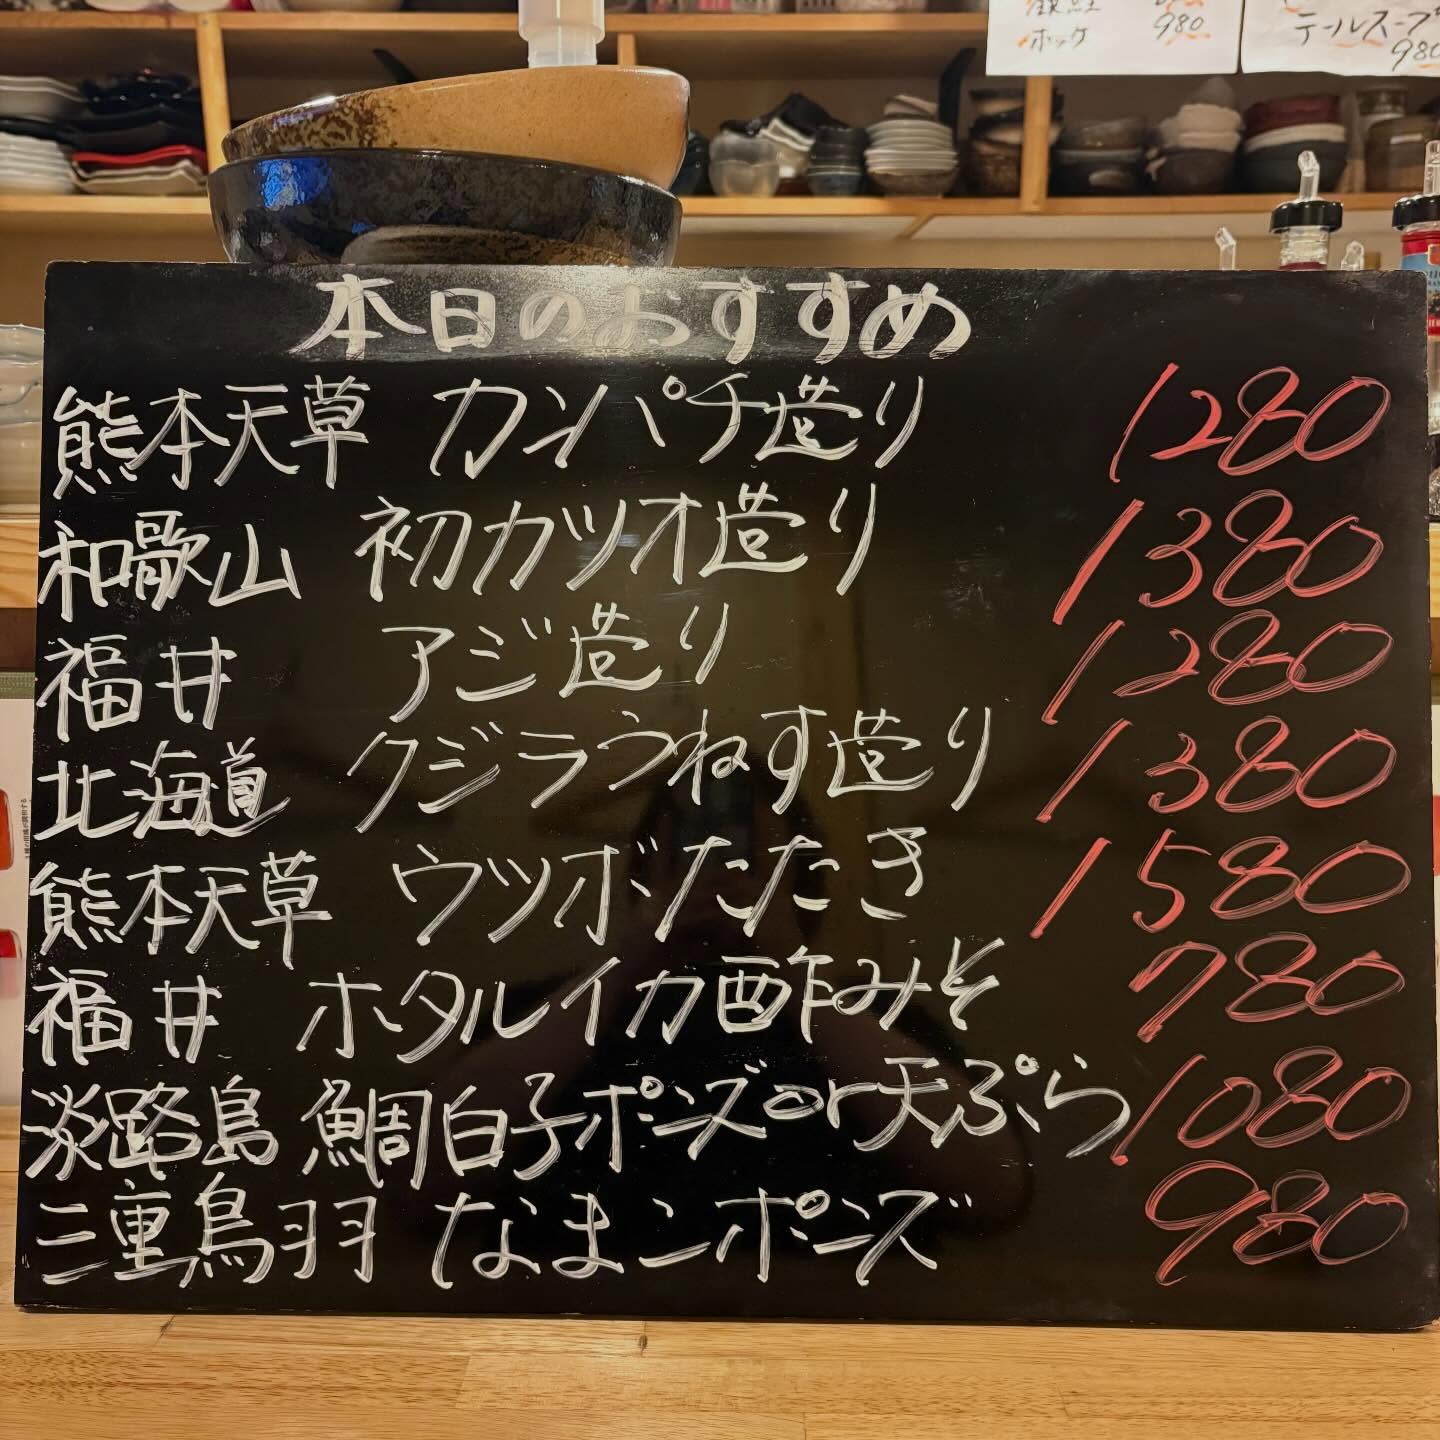 ホッケ 980
テールスープ
980
本日のおすすめ
熊本天草 カンパチ造り 1280
和歌山 初カツオ造り 1380
福井 アジ造り 1280
北海道 クジラうねす造り 1380
熊本天草 ウツボたたき 1580
福井 ホタルイカ酢みそ 780
淡路島 鯛白子ポンズor天ぷら 1080
三重鳥羽 なまこポンズ 980